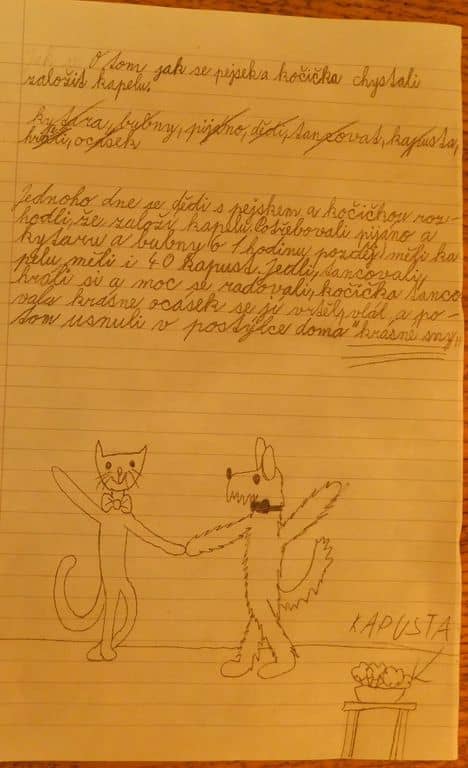 O tom jak se pejsek a kočička chystali
založit kapelu.
kytara, bubny, pijáno, dědi, tancovat, kapusta,
hráli, ocásek
Jednoho dne se dědi s pejskem a kočičkou roz-
hodli, že založí kapelu. Potřebovali pijáno a
kytaru a bubny o 1 hodinu později měli ka
pelu měli i 40 kapust. Jedli, tancovali,
hráli si a moc se radovali, kočička tanco
vala krásně ocásek se jí vrtěl, vlál a po-
tom usnuli v postýlce doma "krásné sny„
KAPUSTA